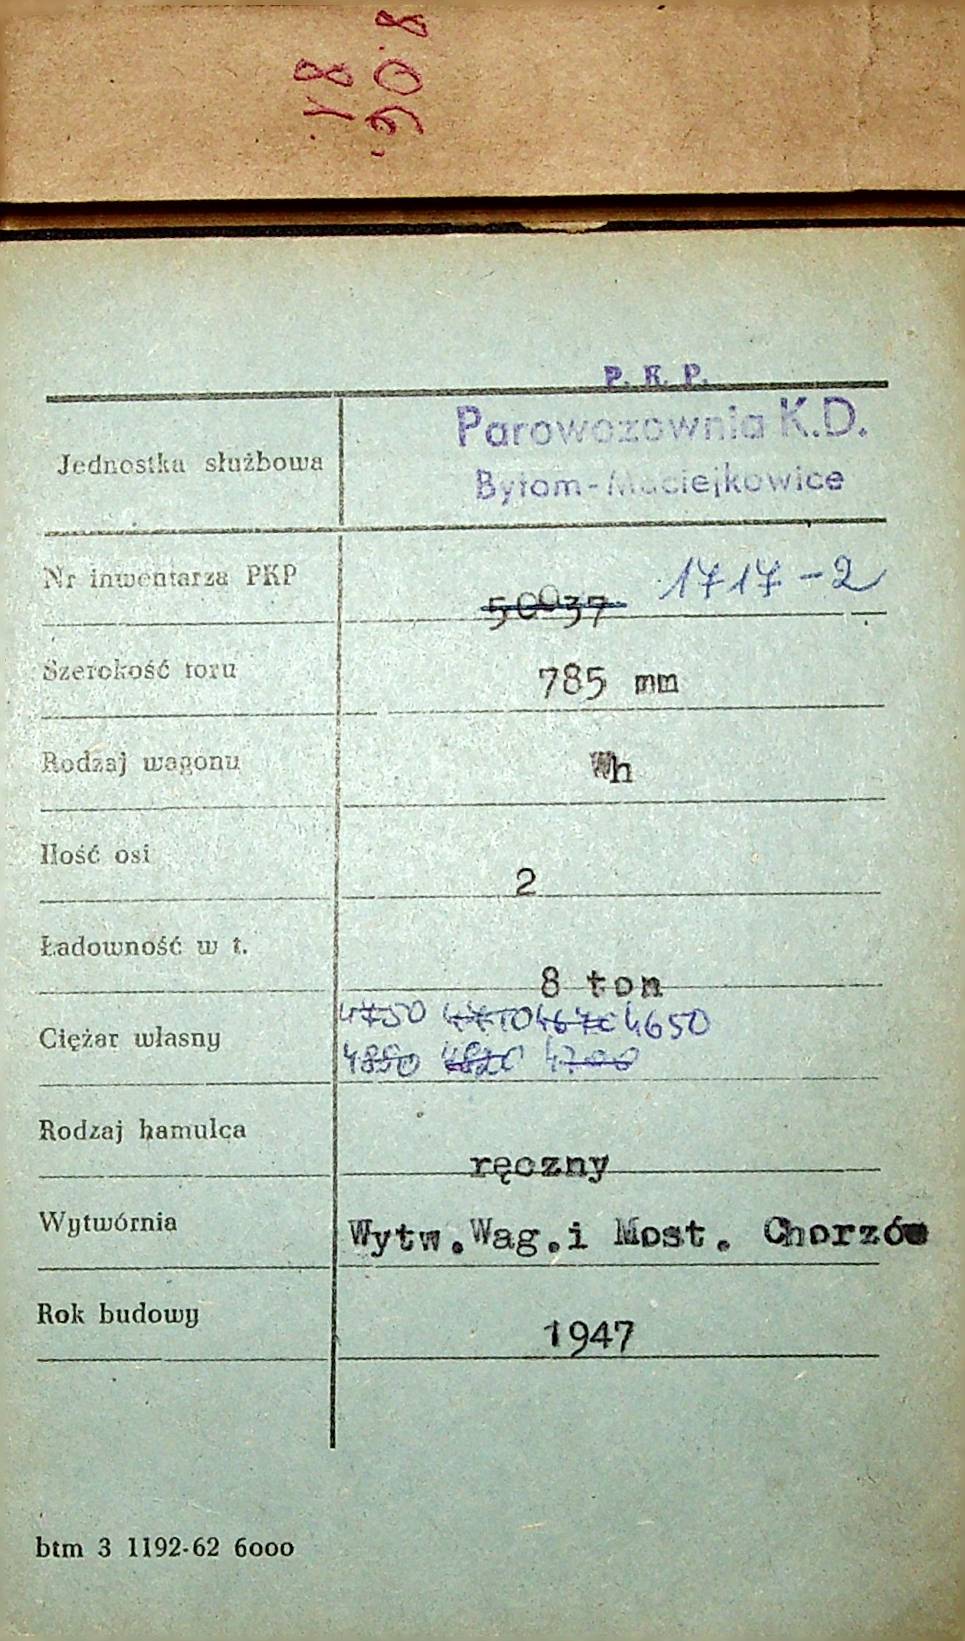 P. K. P.
Jednostka służbowa Parowozownia K.D.
Bytom-Maciejkowice
Nr inwentarza PKP 50037 1717-2
Szerokość toru 785 mm
Rodzaj wagonu Wh
Ilość osi 2
Ładowność w t. 8 ton
Ciężar własny 4750 4710 4670 4650
4890 4820 4700
Rodzaj hamulca ręczny
Wytwórnia Wytw.Wag.i Most. Chorzów
Rok budowy 1947
btm 3 1192-62 6000